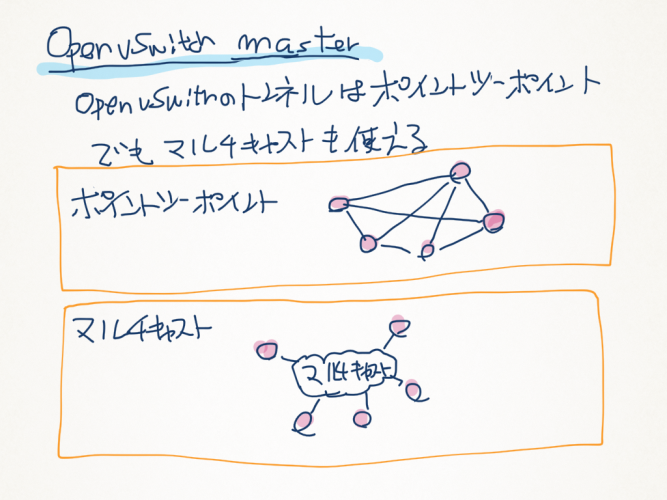 Openvswith master
Openvswithのトンネルはポイントツーポイント
でもマルチキャストも使える
ポイントツーポイント
マルチキャスト
マルチキャスト